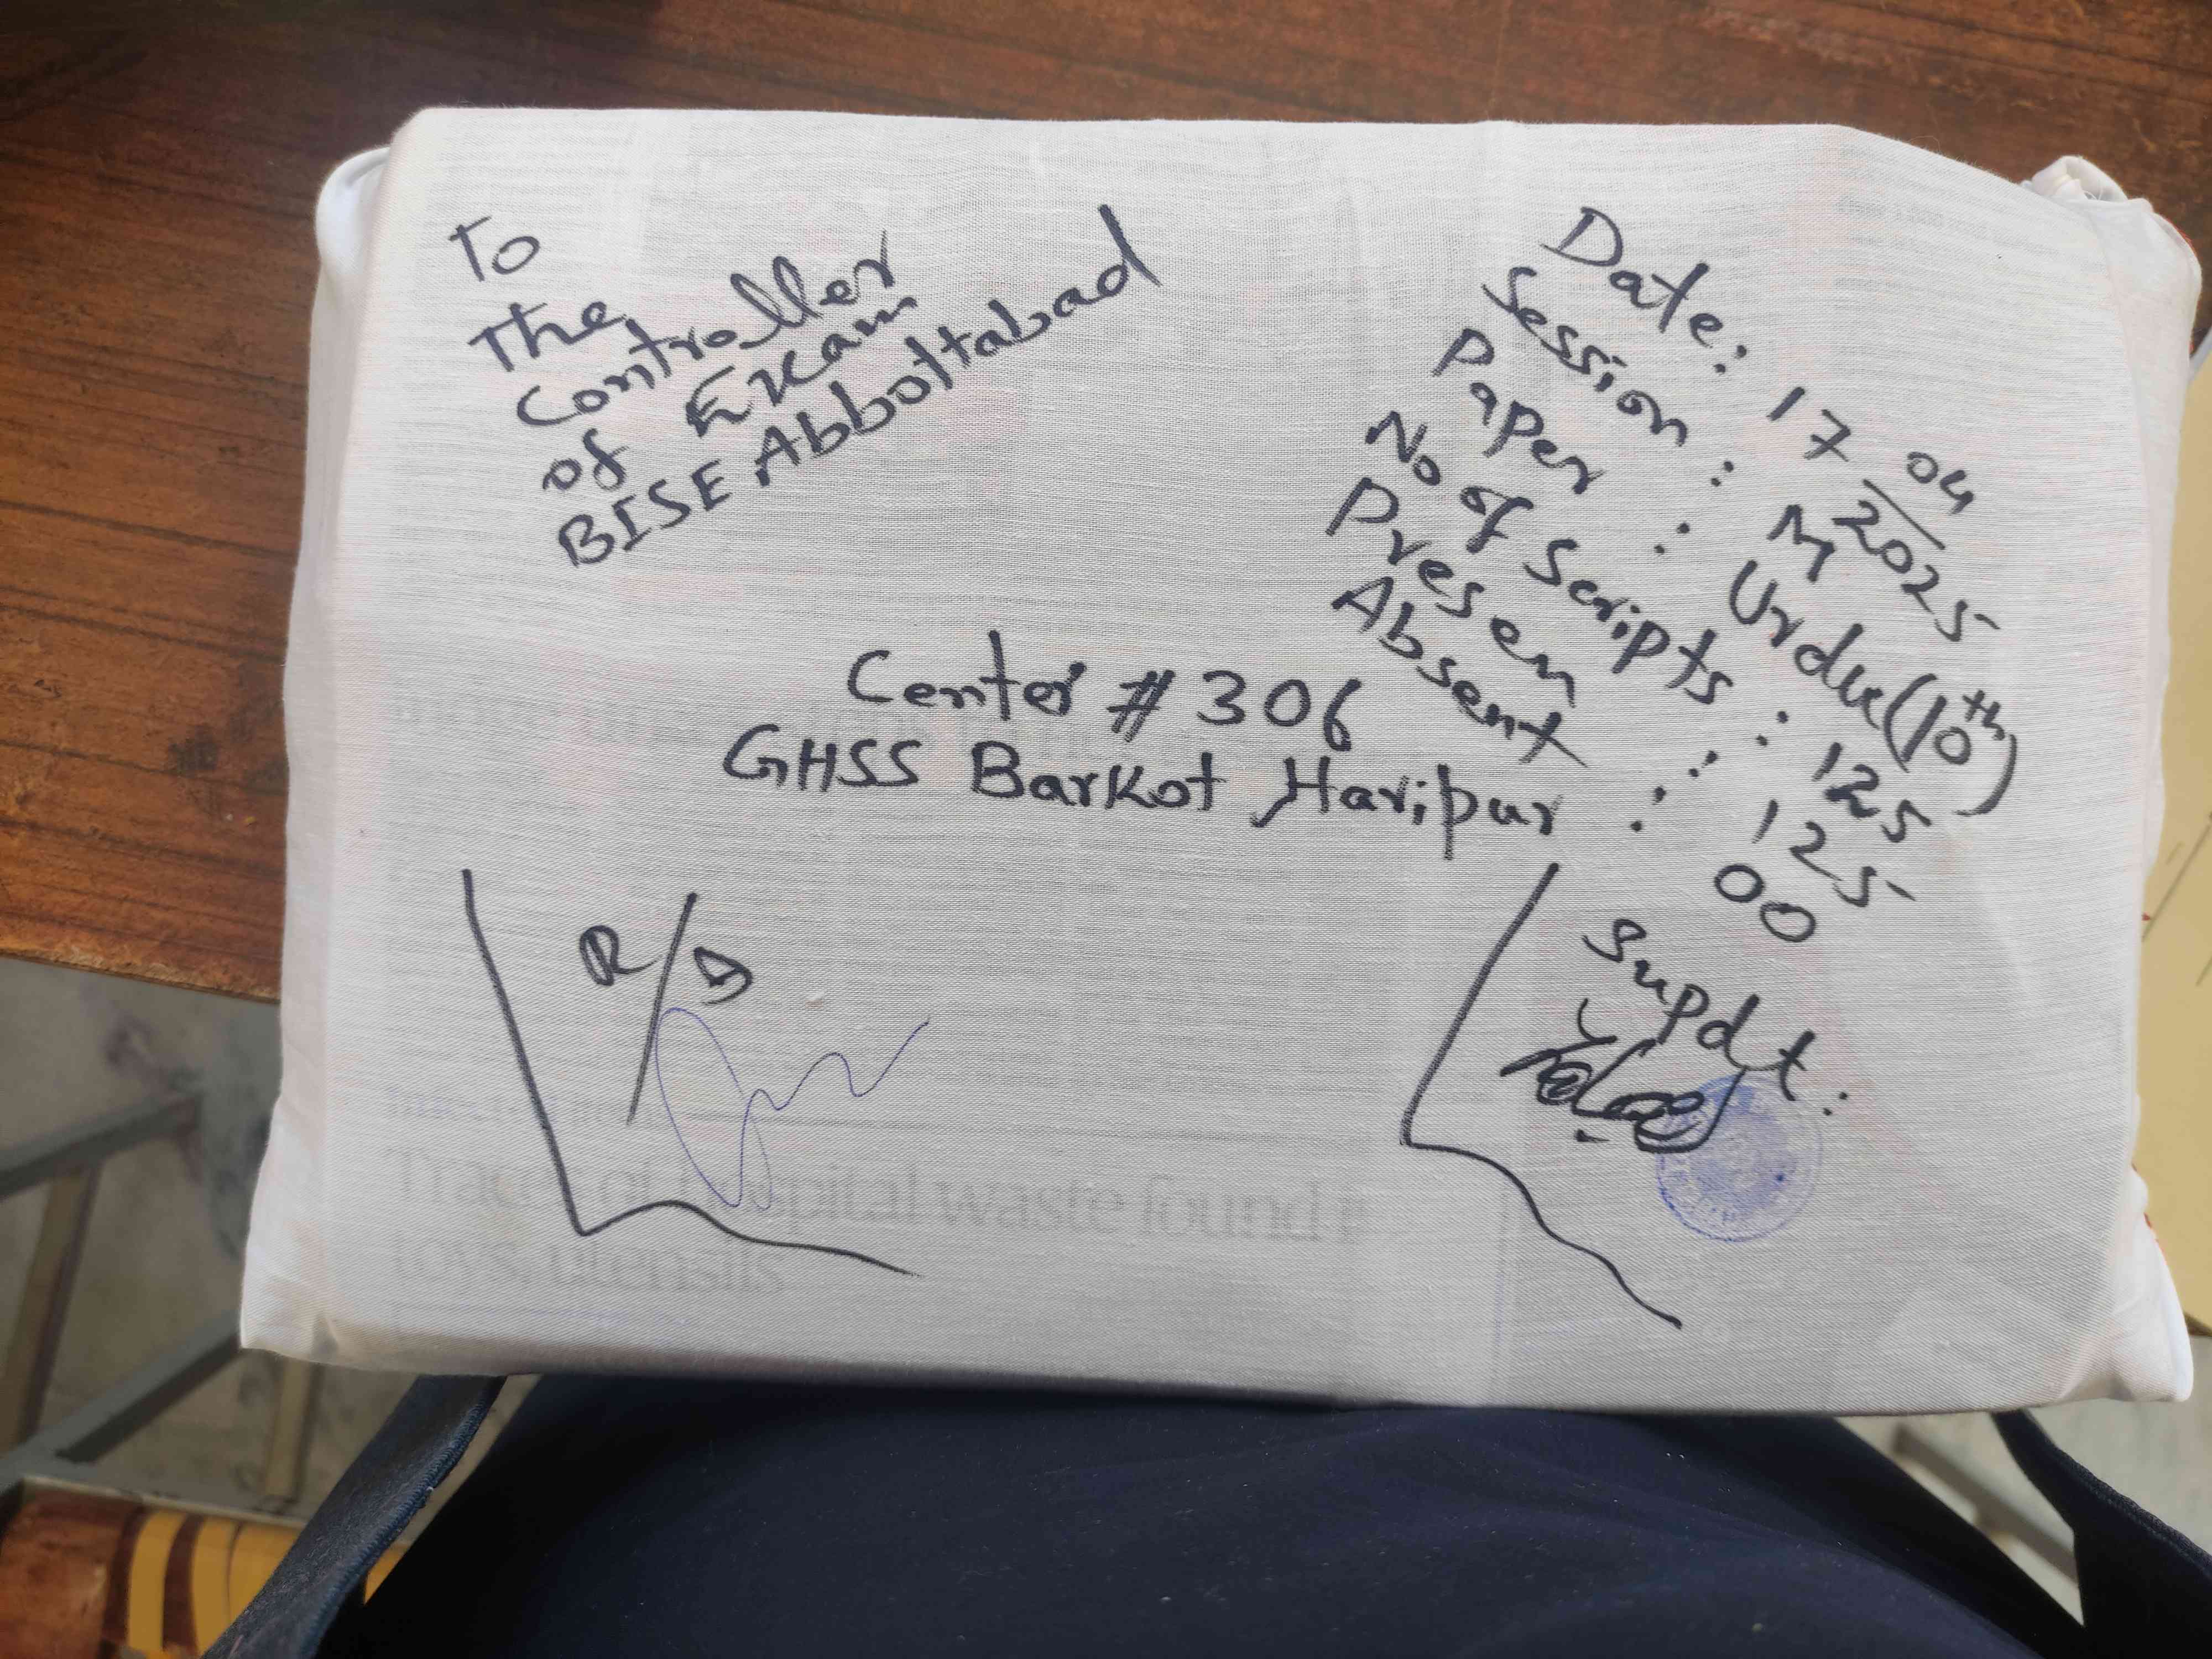 To
The
Controller
of Exam
BISE Abbottabad
Date: 17 04
2025
Session: M
Paper: Urdu (10th)
No of Scripts: 125
Presem: 125
Absent: 00
Center # 306
GHSS Barkot Haripur
R/D
Supdt:
hospital waste found
toys, utensils